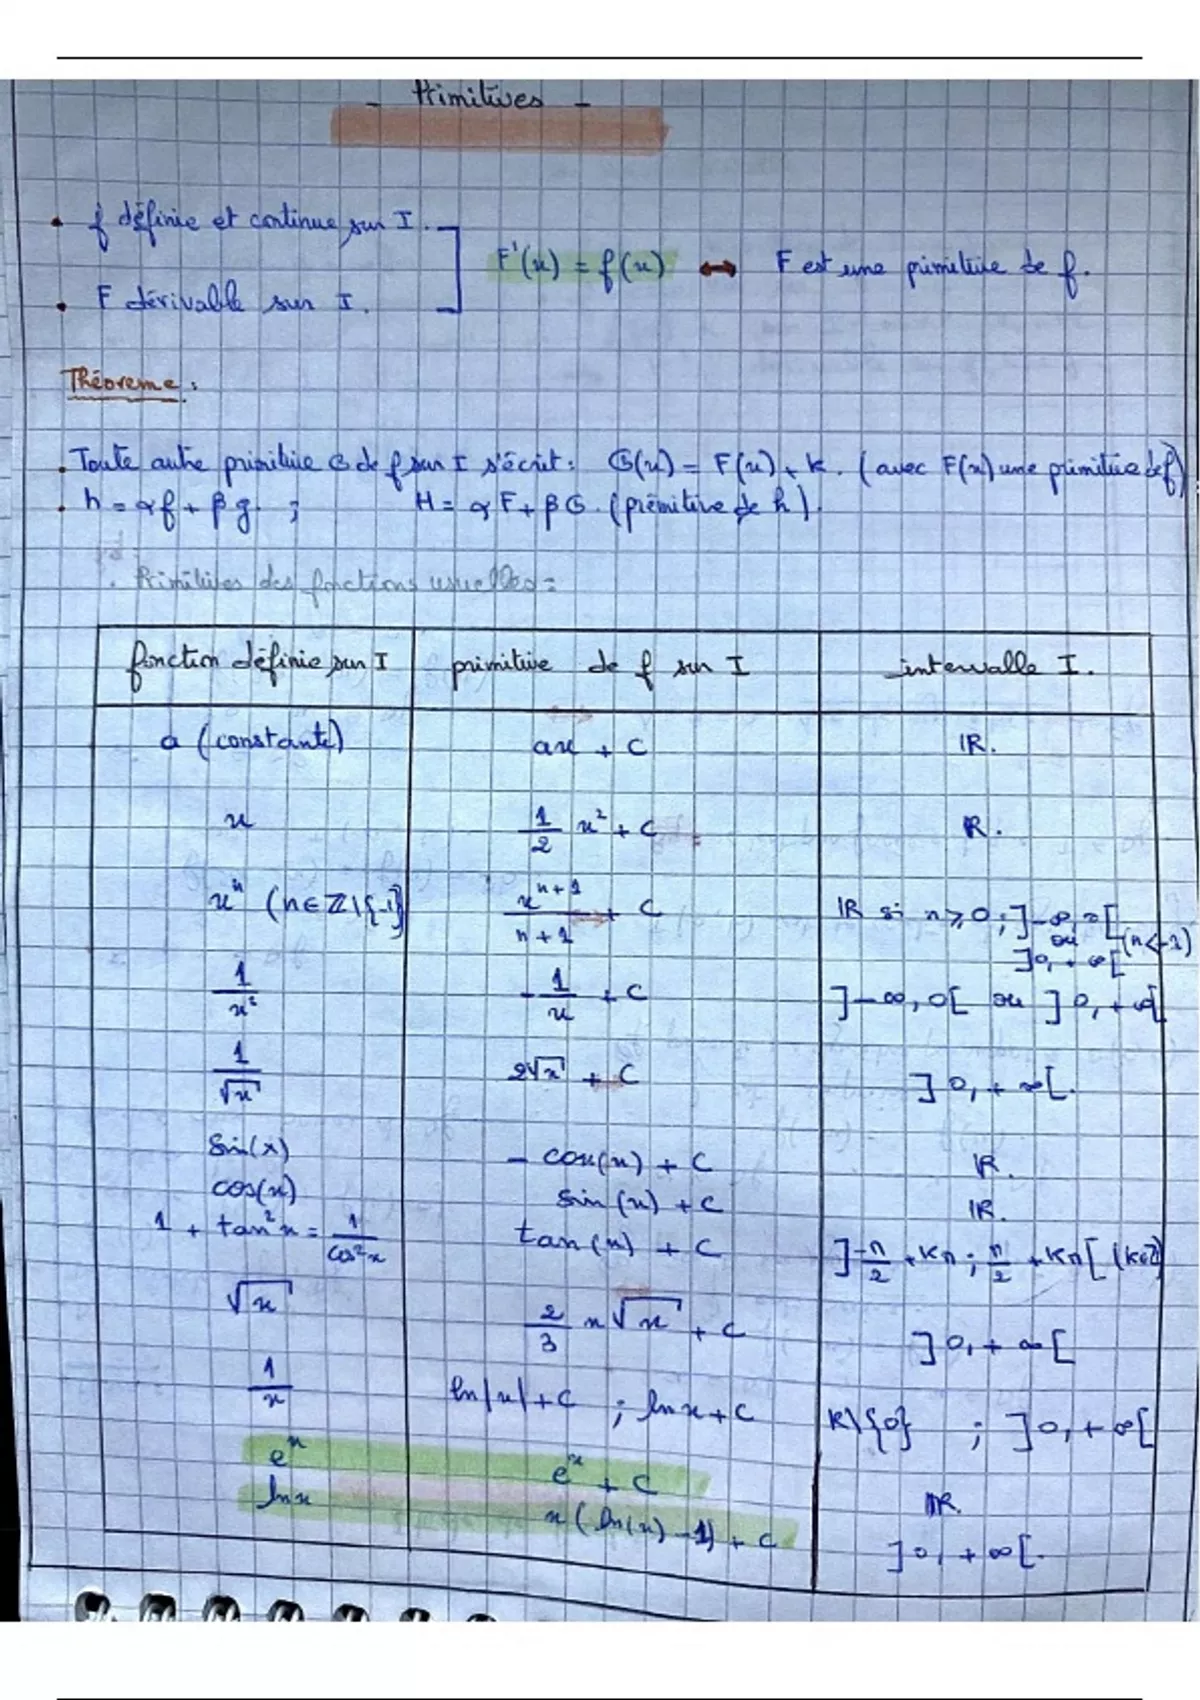 - Primitives -
• f définie et continue sur I.
F'(x) = f(x) ↔ F est une primitive de f.
• F dérivable sur I.
Théoreme :
. Toute autre primitive G de f sur I s'écrit : G(x) = F(x) + k. (avec F(x) une primitive de f)
. h = αf + βg. ; H = αF + βG. (primitive de h).
. Primitives des fonctions usuelles :
fonction définie sur I | primitive de f sur I | intervalle I.
a (constante) | ax + C | IR.
x | 1/2 x² + C | IR.
xⁿ (n∈Z\{-1}) | xⁿ⁺¹/(n+1) + C | IR si n⩾0 ; ]-∞,0[ ou ]0,+∞[ (n<-1)
1/x² | -1/x + C | ]-∞, 0[ ou ]0, +∞[
1/√x | 2√x + C | ]0, +∞[.
sin(x) | - cos(x) + C | IR.
cos(x) | sin(x) + C | IR.
1 + tan²x = 1/cos²x | tan(x) + C | ]-π/2 + kπ ; π/2 + kπ[ (k∈Z)
√x | 2/3 x√x + C | ]0, +∞[
1/x | ln|x| + C ; lnx + C | IR\{0} ; ]0, +∞[
eˣ | eˣ + C | IR.
lnx | x(ln(x) - 1) + C | ]0, +∞[.